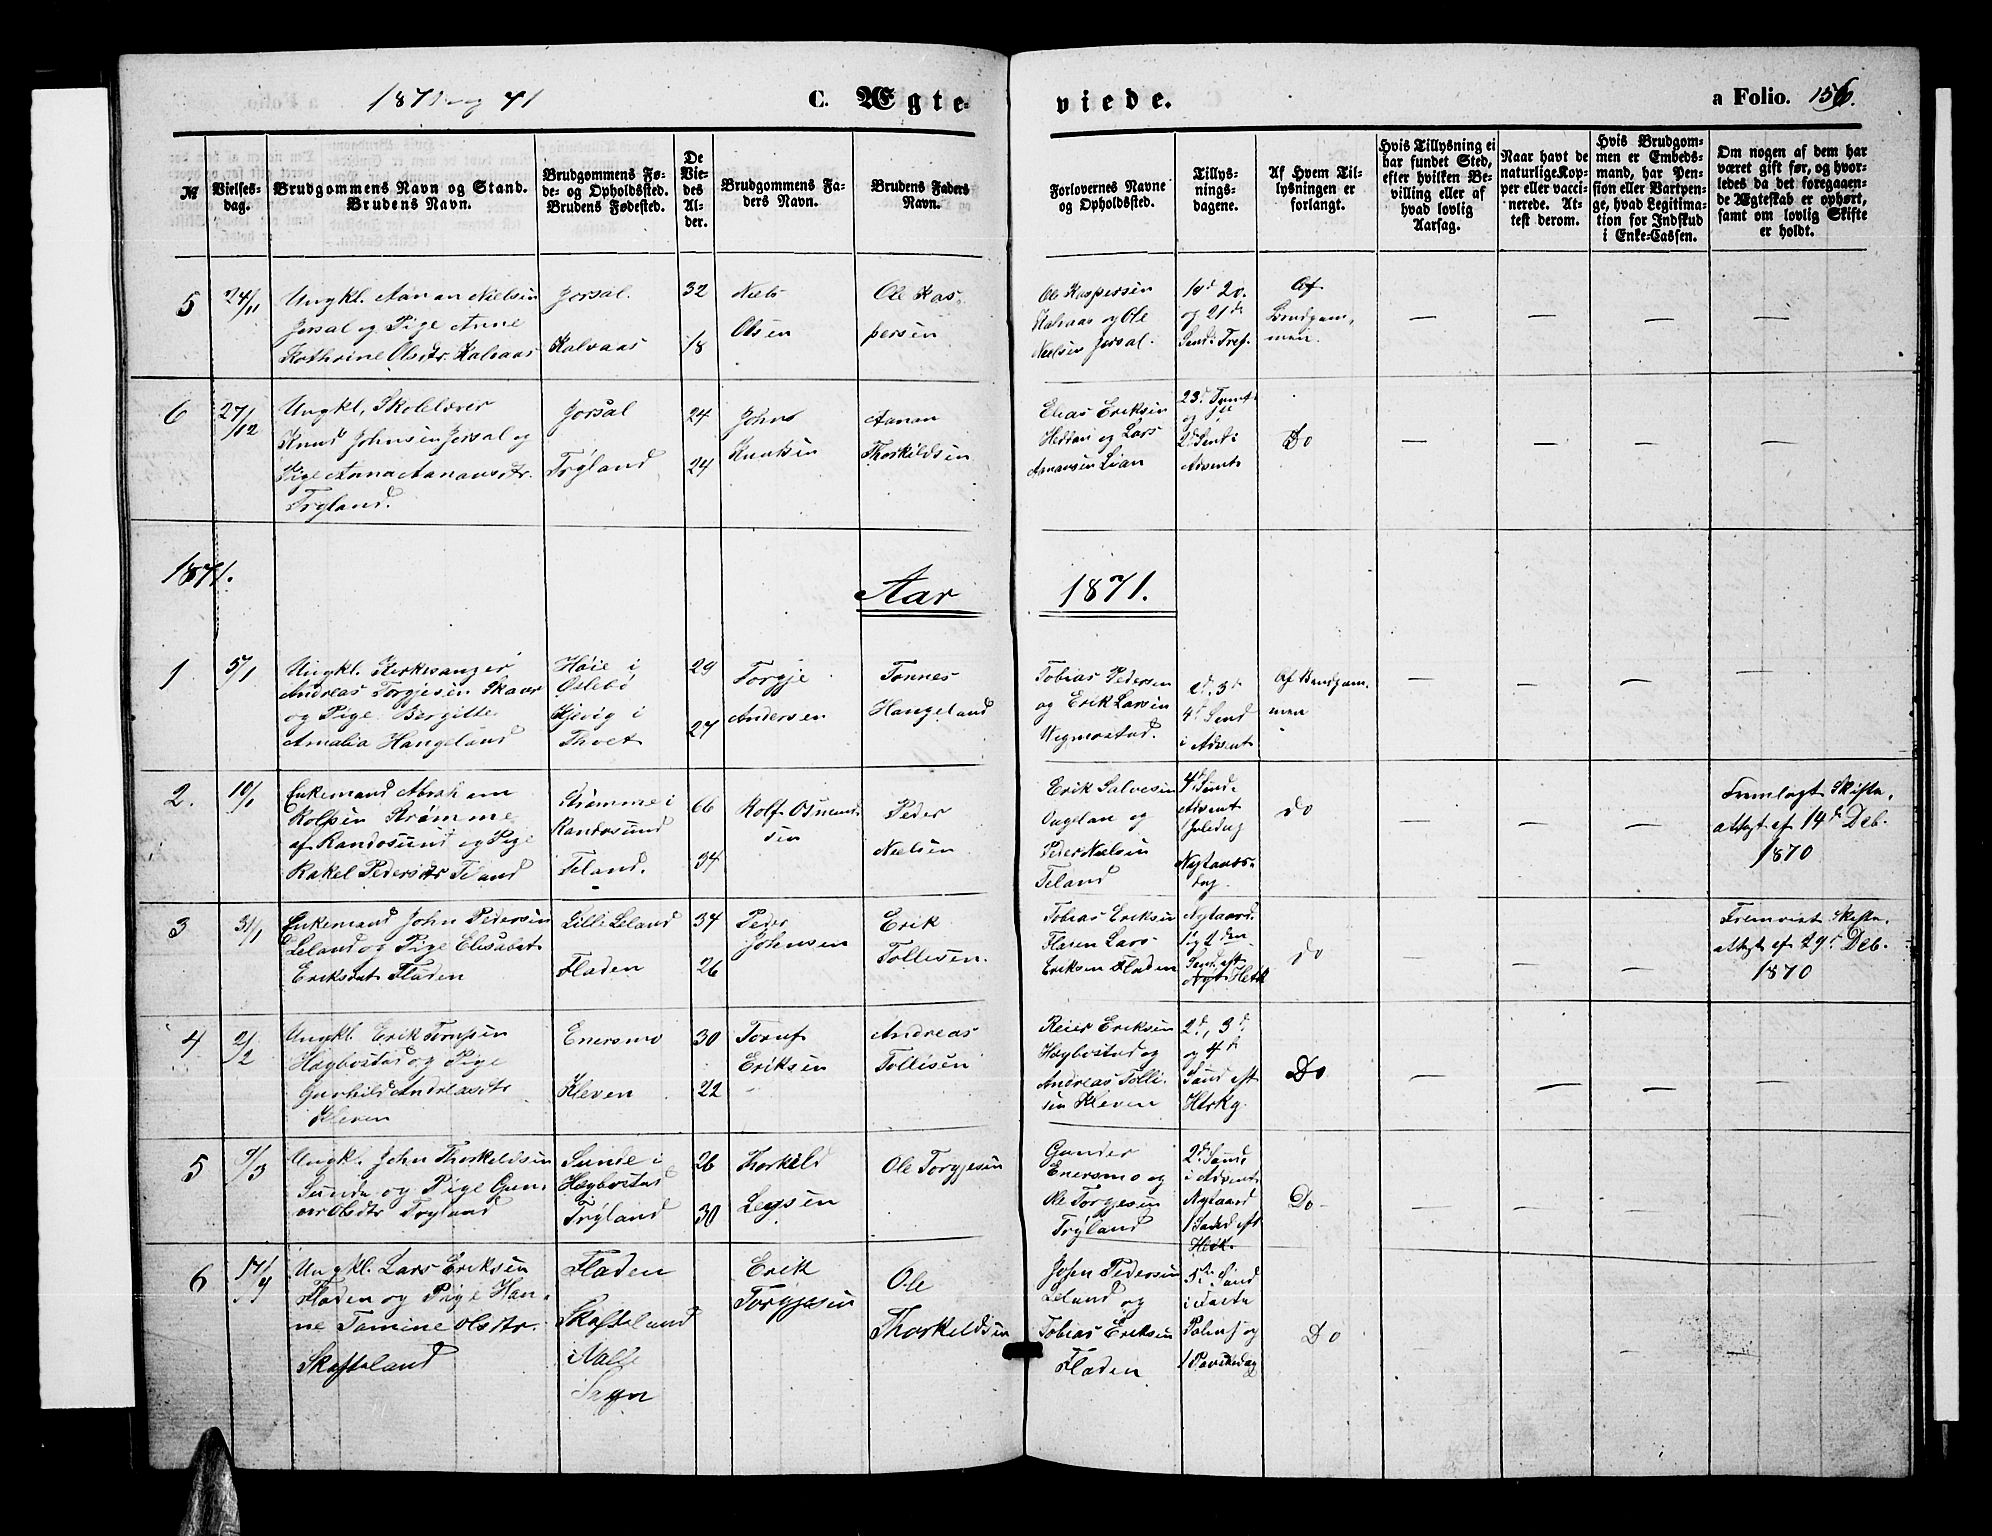 C. Ægte-
viede.
a Folio. 156.
№
Vielses-
dag.
Brudgommens Navn og Stand.
Brudens Navn.
Brudgommens Fø-
de- og Opholdssted.
Brudens Fødested.
De
Vie-
des
Al-
der.
Brudgommens Fa-
ders Navn.
Brudens Faders
Navn.
Forlovernes Navne
og Opholdssted.
Tillys-
nings-
dagene.
Af Hvem Til-
lysningen er
forlangt.
Hvis Tillysning ei
har fundet Sted,
efter hvilken Be-
villing eller af
hvad lovlig
Aarsag.
Naar havt de
naturlige Kop-
per eller vacci-
nerede. At-
test derom.
Hvis Brudgom-
men er Embeds-
mand, har Pen-
sion eller Vartpen-
ge, hvad Legitima-
tion for Indskud
i Enke-Cassen.
Om nogen af dem har
været gift før, og hvor-
ledes da det foregaaen-
de Ægteskab er ophørt,
samt om lovlig Skifte
er holdt.
5
24/11
Ungkl. Aanan Nielsen
Jorsal og Pige Anne
Kathrine Olsdtr. Kalvaas
Jorsal.
Kalvaas
32
18
Niels
Olsen
Ole Kas-
persen
Ole Kaspersen
Kalvaas og Ole
Nielsen Jorsal.
19d 20.
og 21de
Send. Tref.
Af
Brudgom,
men.
6
27/12
Ungkl, Skolelærer
Knud Johnsen Jorsal og
Pige Anna Aanansdtr.
Tryland.
Jorsal
Trÿland
24
24
John
Knutsen
Aanan
Thorkildsen
Elias Eriksen
Heddan og Lars
Aanansen Lian
23d
og
2d Send i
Advent
Do
1871.
Aar
1871.
1
5/1
Ungkl. Kirkesanger
Andreas Torgjesen Skaar
og Pige Bergitte
Amalia Hangeland
Høie i
Oslebö
Kjevig i
Thvet
29
27
Torgje
Andersen
Tønnes
Hangeland
Tobias Pedersen
og Erik Larsen
Wigmostad.
2d, 3d
4d Send
i Advent
Af Brudgom.
men
2.
10/1
Enkemand Abraham
Rolfsen Strømme
af Randøsund og Pige
Rakel Pedersdtr Teland
Strømme i
Randøsund
Teland.
66
34
Rolf Osmund
sen
Peder
Nielsen
Erik Salvesen
og
Peder Nielsen
Teland
4d Sund.
Advent
1 Juledag
Nytaars-
dag.
Do
Fremlagt Skifte.
attest af 14d Deb.
1870
3
31/1
Enkemand John Pedersen
Leland og Pige Elisabet
Eriksdat Fladen
Lille Leland
Fladen
34
26
Peder
Johnsen
Erik
Tollisen.
Tobias Eriksen
Fladen Lars
Eriksen Fladen
Nytaard.
1 og 2den
Send. eft
Nyt HelK
Do
Fremvist Skifte.
attest af 29d Deb.
1870
4
2/2
Ungkl. Erik Torufsen
Hægbostad og Pige
Gunhild Andreasdtr
Kleven
Enersmo
Kleven
30
22
Toruf
Eriksen
Andreas
Tollisen
Reier Eriksen
Hægbostad og
Andreas Tolli.
sen Kleven
2d, 3d.
og 4d
Sand eft
H3kg.
Do
5
9/3
Ungkl. John Thorkeldsen
Sunde og Pige Gun.
vor Olsdtr Tryland
Sunde i
Hægbostad
Trÿland
26
30
Thorkeld
Ole Torgjesen
Gunder
Enersmo og
Ole Torgjesen
Trÿland
2d Sand,
i Advent
Nytaard
1 Sand eft
H3K.
Do
6
17/4
Ungkl. Lars Eriksen
Fladen og Pige Han-
ne Tomine Olsdtr.
Skofteland
Fladen
Skofteland
i Nalle
Sogn
Erik
Torgjesen
Ole
Thorkeldsen
John Pedersen
Leland og
Tobias Eriksen
Fladen
5te Sand
i Faste
Palms og
1 Paaskedag
Do